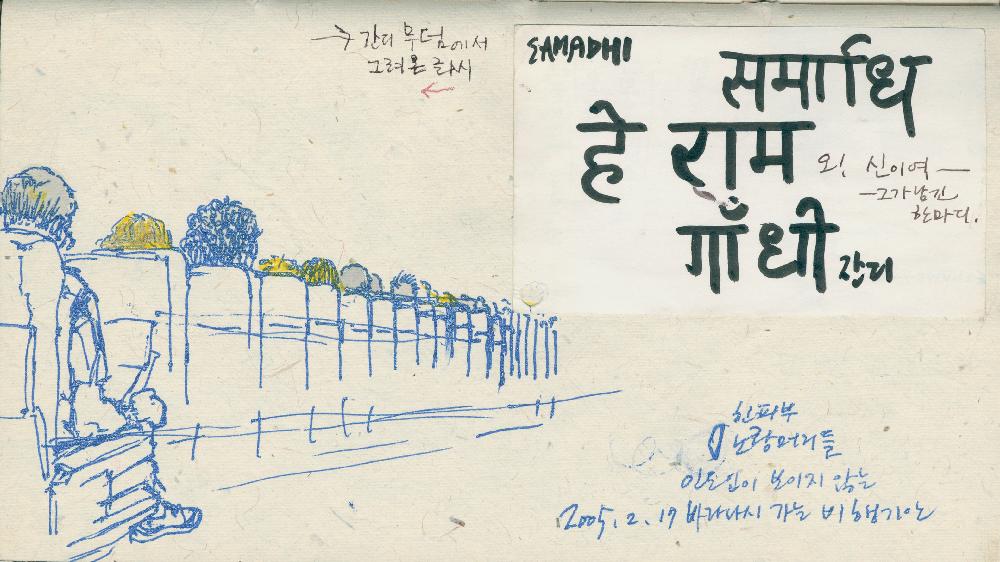 → 간디 무덤에서
그려온 글씨
←
SAMADHI
समाधि
हे राम
오! 신이여 —
— 그가 남긴
한마디.
गाँधी 간디
흰피부
노랑머리들
인도인이 보이지 않는
2005. 2. 17 바라나시 가는 비행기안